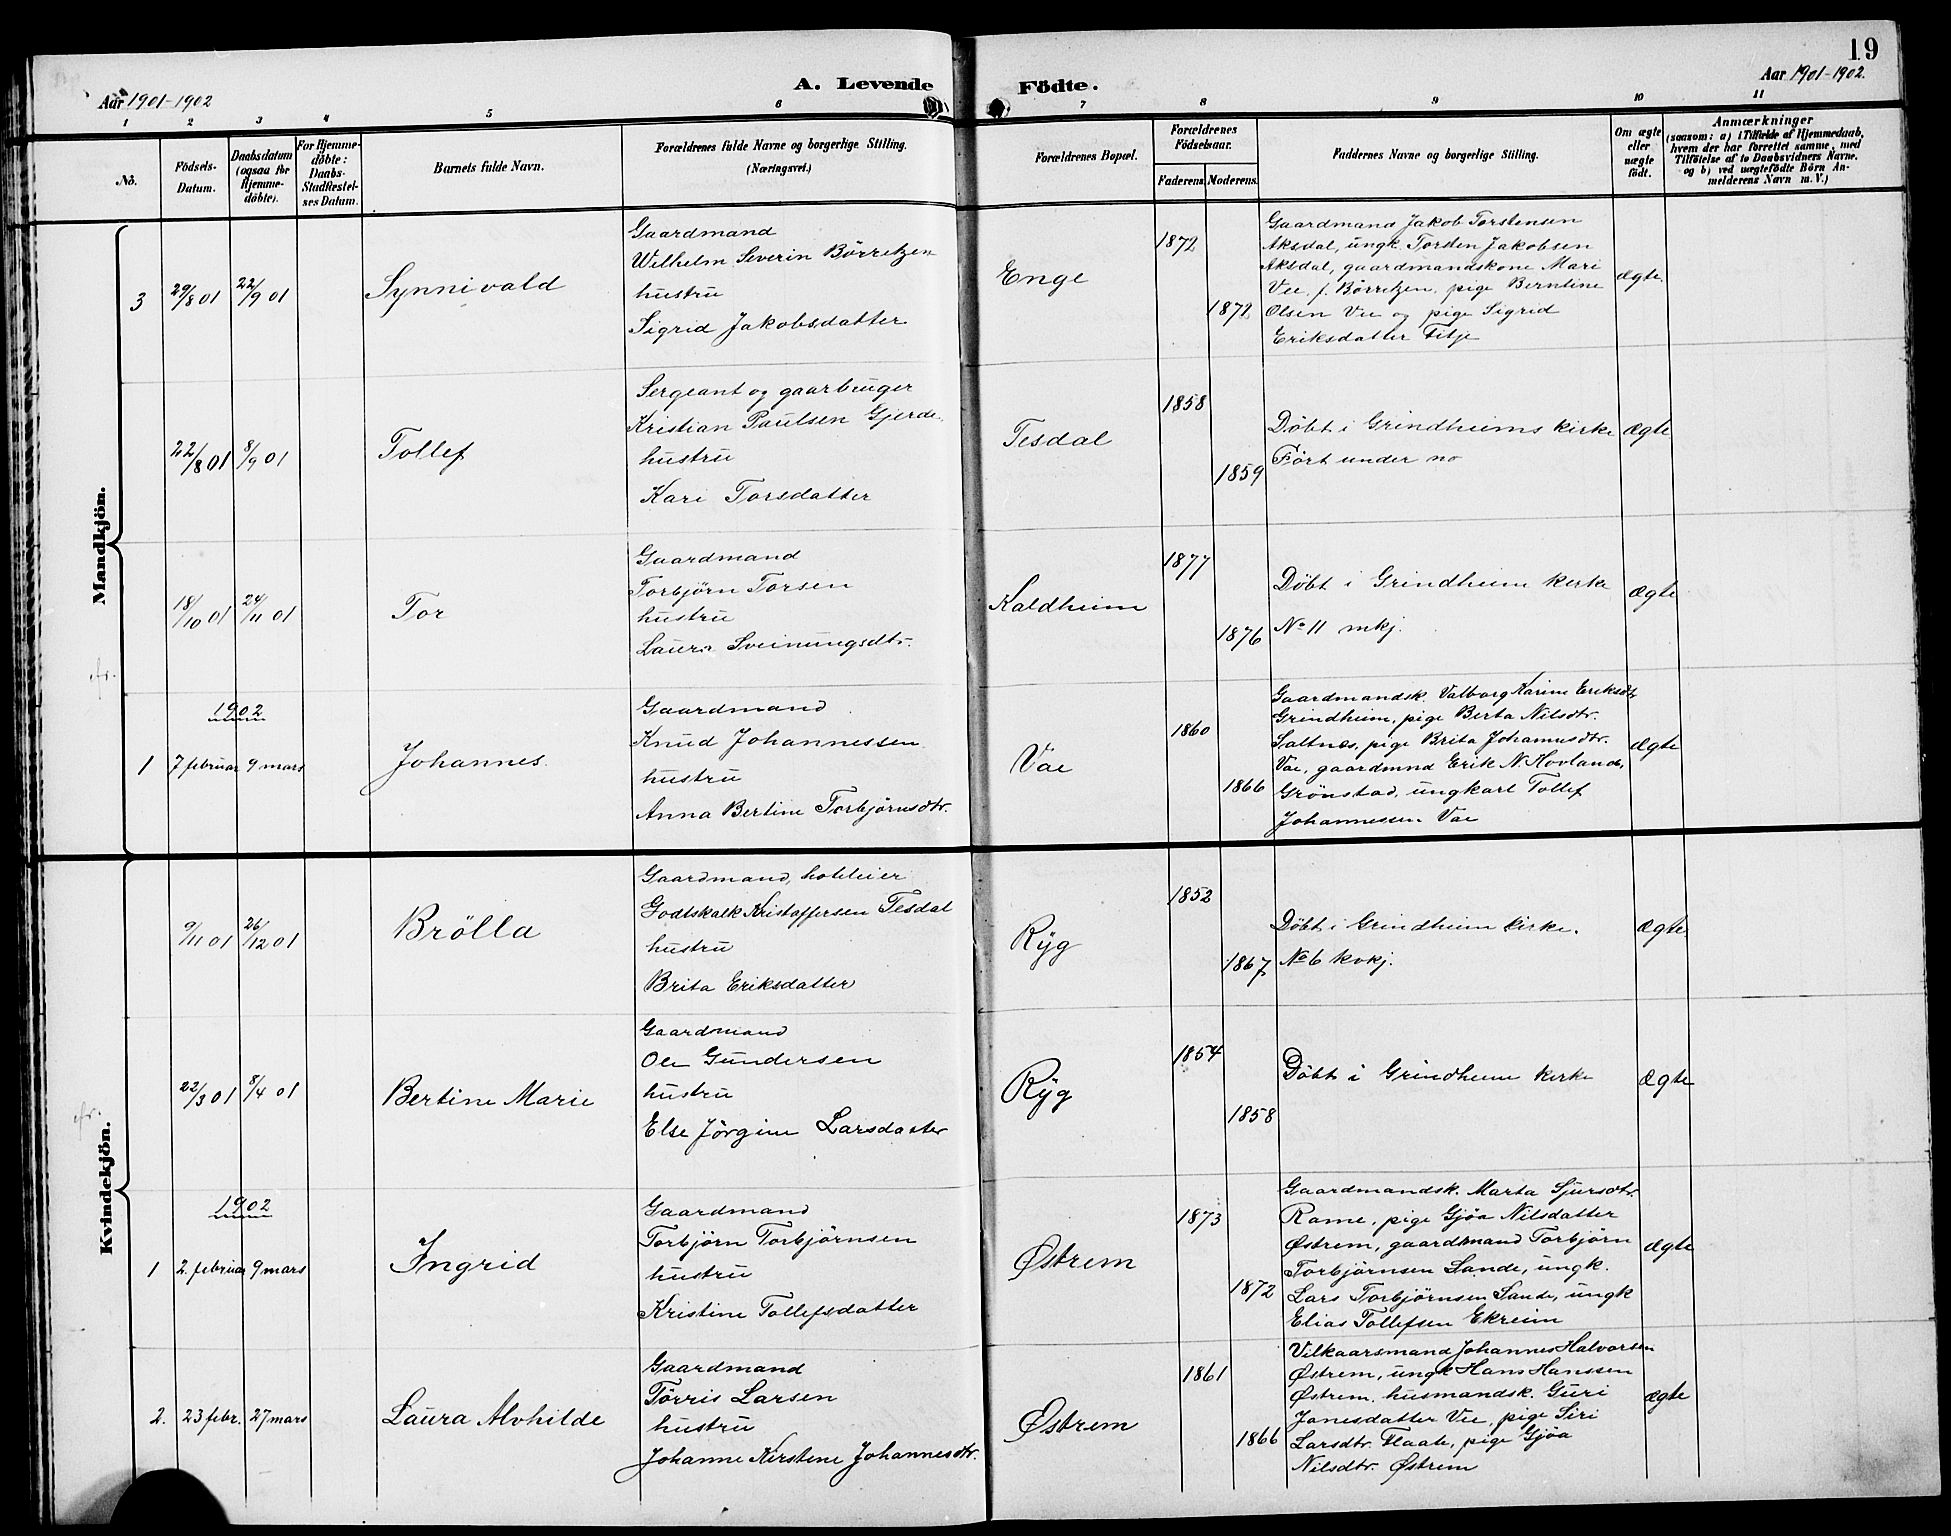 19
Aar 1901-1902
A. Levende Födte.
Aar 1901-1902.
1 2 3 4 5 6 7 8 9 10 11
No.
Födsels-
Datum.
Daabsdatum
(ogsaa for
Hjemme-
döbte).
For Hjemme-
döbte:
Daabs-
Stadfæstel-
ses Datum.
Barnets fulde Navn.
Forældrenes fulde Navne og borgerlige Stilling.
(Næringsvei.)
Forældrenes Bopæl.
Forældrenes
Födselsaar.
Faderens. Moderens.
Faddernes Navne og borgerlige Stilling.
Om ægte
eller
uægte
födt.
Anmærkninger
(saasom: a) i Tilfælde af Hjemmedaab,
hvem der har forrettet samme, med
Tilföielse af to Daabsvidners Navne.
og b) ved uægtefödte Börn An-
melderens Navn m. V.)
Mandkjön.
3
29/8 01
22/9 01
Synnivald
Gaardmand
Wilhelm Severin Börretzen
hustru
Sigrid Jakobsdatter
Enge
1872
1872
Gaardmand Jakob Torstensen
Aksdal, ungk. Torsten Jakobsen
Aksdal, gaardmandskone Mari
Vee, f. Börretzen, pige Berntine
Olsen Vee og pige Sigrid
Eriksdatter Fitje
ægte.
22/8 01
8/9 01
Tollef
Sergeant og gaarbruger
Kristian Paulsen Gjerde.
hustru
Kari Torsdatter
Tesdal
1858
1859
Döbt i Grindheims kirke
Fört under no
ægte
18/10 01
24/11 01
Tor
Gaardmand
Torbjörn Torsen
hustru
Laura Sveinungsdtr.
Kaldheim
1877
1876
Döbt i Grindheim kirke
No 11 mkj.
ægte
1902
1
7 februar
9 mars
Johannes.
Gaardmand
Knud Johannessen
hustru
Anna Bertine Torbjörnsdtr.
Vae
1860
1866
Gaardmandsk. Valborg Karine Eriksdt
Grindheim, pige Berta Nilsdtr.
Saltnæs, pige Brita Johannesdtr.
Vae, gaardmnd Erik N. Hovland,
Grönstad, ungkarl Tollef
Johannessen Vae
ægte
Kvindekjön.
9/11 01
26/12 01
Brölla
Gaardmand, hoteleier
Godtskalk Kristoffersen Tesdal
hustru
Brita Eriksdatter
Ryg
1852
1867
Döbt i Grindheim kirke.
No 6 kvkj.
ægte.
22/3 01
8/4 01
Bertine Marie
Gaardmand
Ole Gundersen
hustru
Else Jörgine Larsdatter
Ryg
1854
1858
Döbt i Grindheim kirke
ægte
1902
1
2. februar
9 mars
Ingrid
Gaardmand
Torbjörn Torbjörnsen
hustru
Kristine Tollefsdatter
Østrem
1873
1872
Gaardmandsk. Marta Sjursdtr.
Rame, pige Gjöa Nilsdatter
Østrem, gaardmand Torbjörn
Torbjörnsen Sande, ungk.
Lars Torbjörnsen Sande, ungk
Elias Tollefsen Ekreim
ægte
2.
23 febr.
27 mars
Laura Alvhilde
Gaardmand
Törris Larsen
hustru
Johanne Kerstene Johannesdtr.
Østrem
1861
1866
Vilkaarsmand Johannes Halvorsen
Østrem, ungk Hans Hanssen
Østrem, husmandsk. Guri
Jonesdatter Vee, pige Siri
Larsdtr. Flaate, pige Gjöa
Nilsdtr. Østrem
ægte